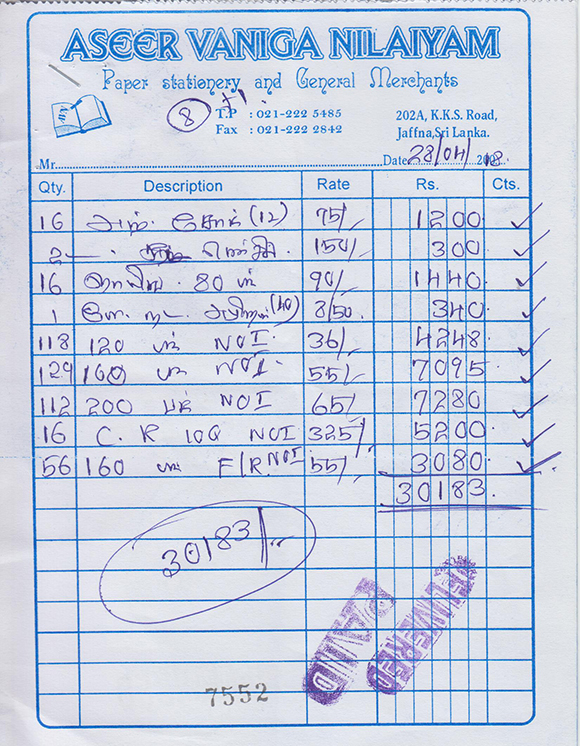 ASEER VANIGA NILAIYAM
Paper stationery and General Merchants
8
T.P : 021-222 5485
Fax : 021-222 2842
202A, K.K.S. Road,
Jaffna, Sri Lanka.
Mr. Date 28/04/ 18
Qty. Description Rate Rs. Cts.
16 (12) 75/ 1200
2 150/ 300
16 80 பக் 90/ 1440
1 (40) 8/50 340
118 120 பக் NOI 36/ 4248
129 160 பக் NOI 55/ 7095
112 200 பக் NOI 65/ 7280
16 C. R 100 NOI 325/ 5200
56 160 பக் F/R NOI 55/ 3080
30183
30183/
PAID
DELIVERED
7552